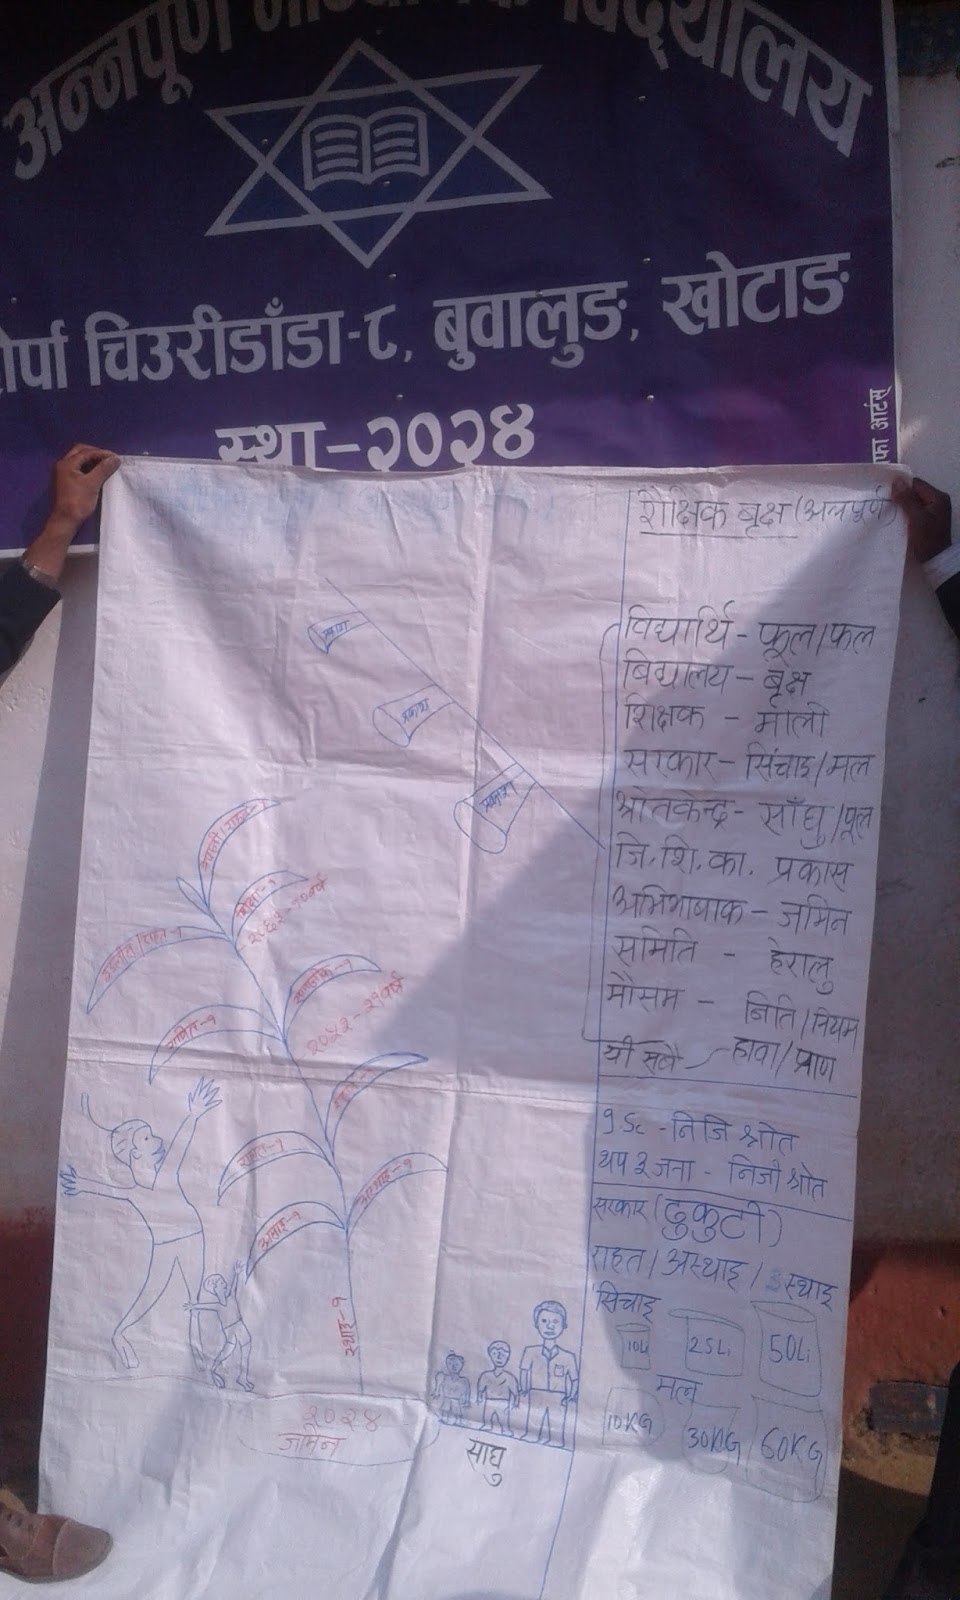 अन्नपूर्ण माध्यमिक विद्यालय
चिउरीडाँडा-८, बुवालुङ, खोटाङ
स्था-२०२४
आर्टस्
शैक्षिक बृक्ष (अन्नपूर्ण)
विद्यार्थि - फूल/फल
विद्यालय - बृक्ष
शिक्षक - माली
सरकार - सिंचाइ/मल
श्रोतकेन्द्र - साँघु/पूल
जि.शि.का. प्रकास
अभिभाबाक - जमिन
समिति - हेरालु
मौसम - निति/नियम
यी सबै - हावा/प्राण
निजि श्रोत
थप २ जना - निजी श्रोत
सरकार (ढुकुटी)
राहत/अस्थाइ/स्थाइ
सिचाइ
10Li 25Li 50Li
मल
10KG 30KG 60KG
प्रकाश
गणित-१
२०५२-२१वर्ष
राहत-१
अस्थाइ-१
स्थाइ-१
२०२४
जमिन
साघु